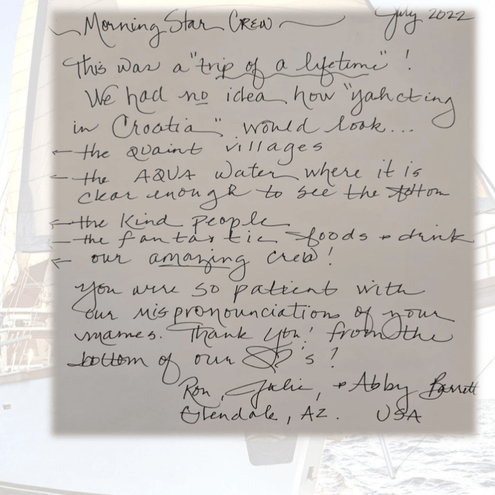 Morning Star Crew
July 2022
This was a "trip of a lifetime"!
We had no idea how "yahcting
in Croatia" would look...
← the quaint villages
← the AQUA water where it is
clear enough to see the bottom
← the Kind people
← the fantastic foods & drink
← our amazing crew!
You were so patient with
our mispronounciations of your
names. Thank you! from the
bottom of our ♡'s!
Ron, Julie, & Abby Barrett
Glendale, AZ. USA